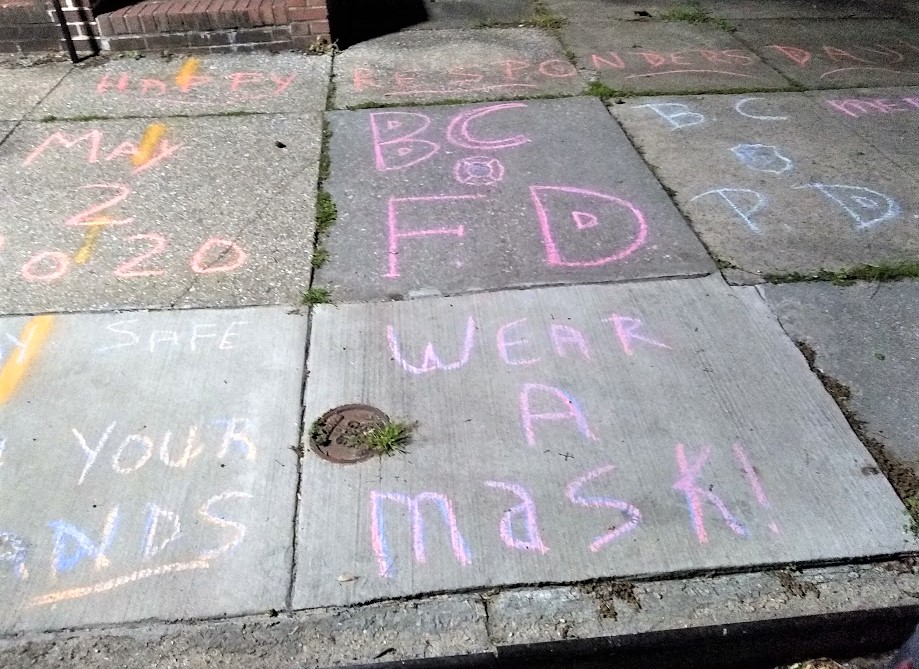 HAPPY RESPONDERS DAY
MAY
2
2020
BC
FD
BC
PD
SAFE
YOUR
WEAR
A
MASK!